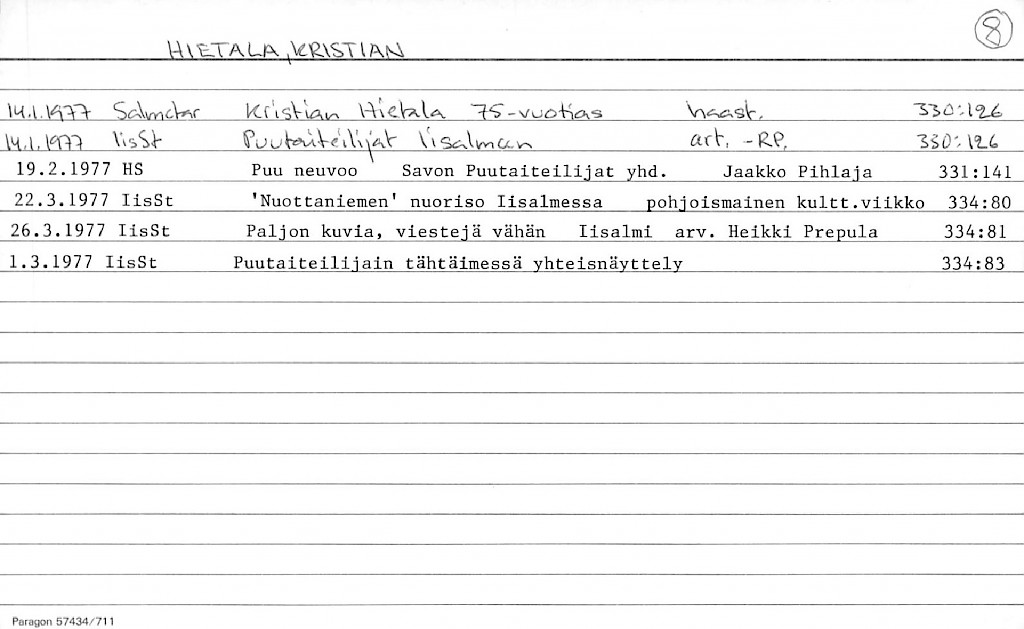 8
HIETALA, KRISTIAN
14.1.1977 Salmetar Kristian Hietala 75-vuotias haast. 330:126
14.1.1977 IisSt Puutaiteilijat Iisalmeen art. -RP. 330:126
19.2.1977 HS Puu neuvoo Savon Puutaiteilijat yhd. Jaakko Pihlaja 331:141
22.3.1977 IisSt 'Nuottaniemen' nuoriso Iisalmessa pohjoismainen kultt.viikko 334:80
26.3.1977 IisSt Paljon kuvia, viestejä vähän Iisalmi arv. Heikki Prepula 334:81
1.3.1977 IisSt Puutaiteilijain tähtäimessä yhteisnäyttely 334:83
Paragon 57434/711